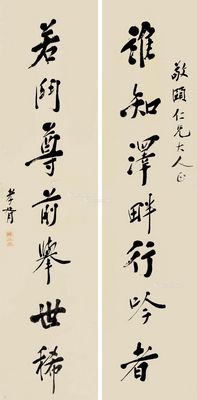 敬頤仁兄大人正
誰知澤畔行吟者
若鬥尊前舉世稀
孝胥